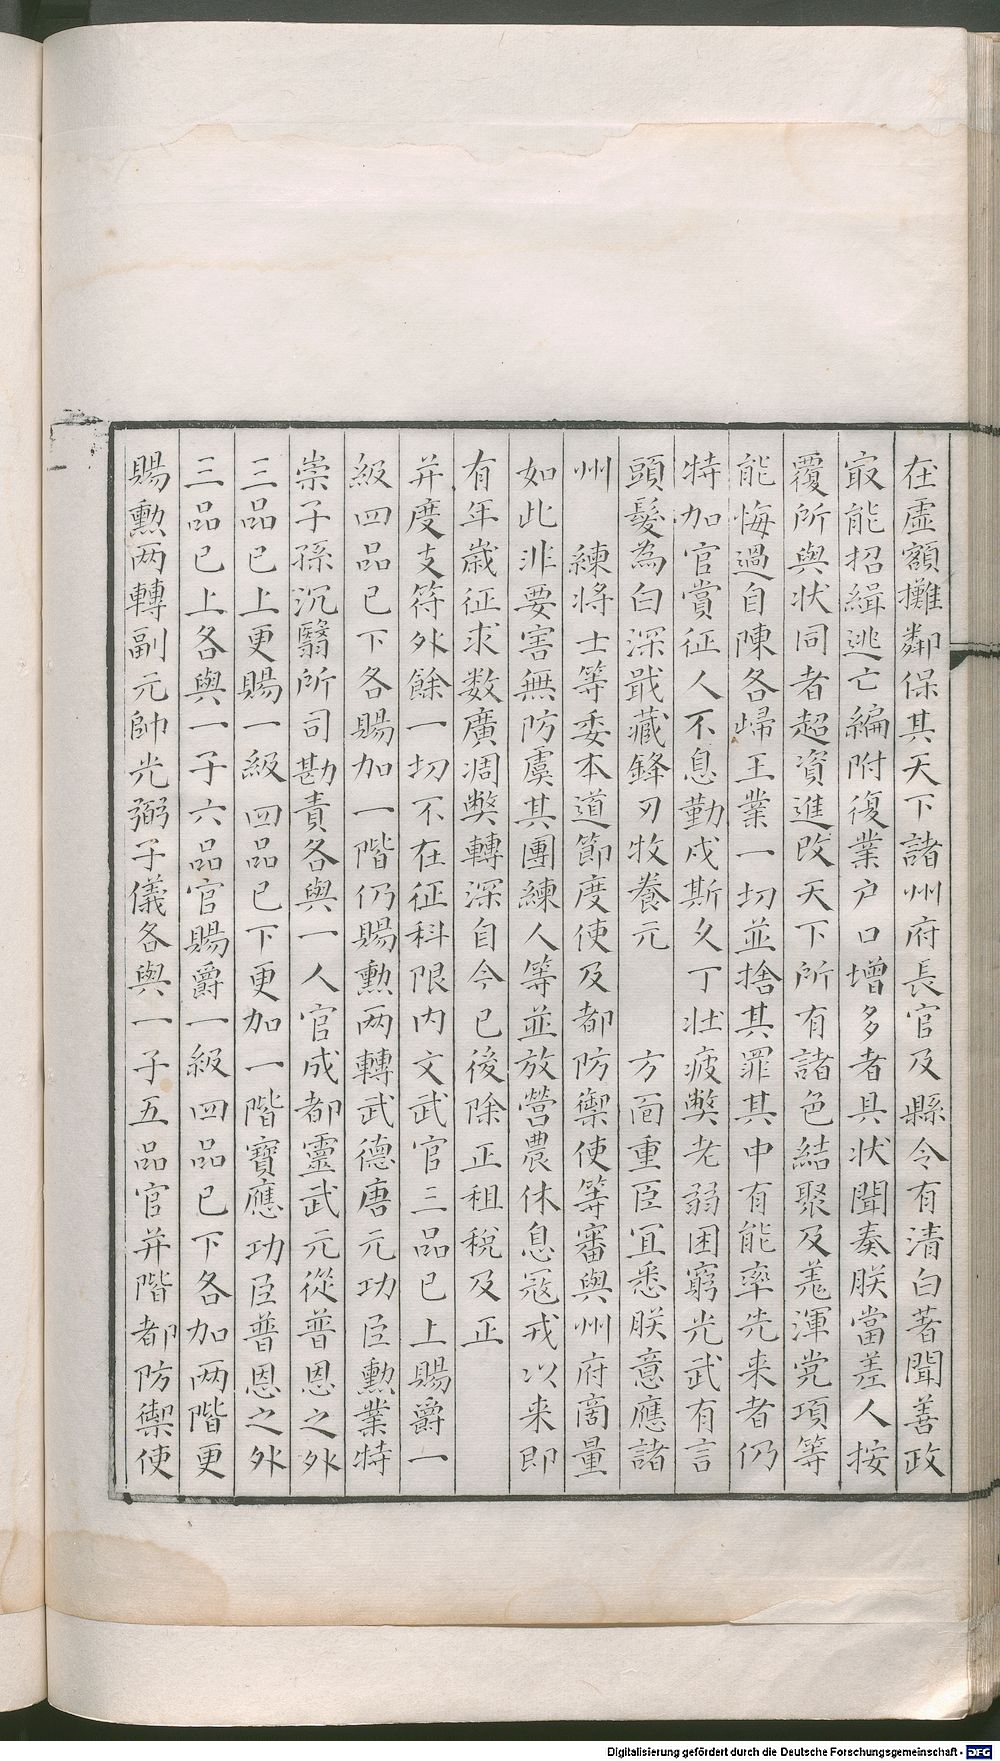 在虛額攤鄰保其天下諸州府長官及縣令有清白著聞善政
㝡能招緝逃亡編附復業户口增多者具状聞奏朕當差人按
覆所與状同者超資進改天下所有諸色結聚及羗渾党項等
能悔過自陳各歸王業一切並捨其罪其中有能率先来者仍
特加官賞征人不息勤戍斯久丁壮疲獘老弱困窮光武有言
頭髮為白深戢藏鋒刃牧養元　　方面重臣冝悉朕意應諸
州　練将士等委本道節度使及都防禦使等審與州府商量
如此非要害無防虞其團練人等並放營農休息寇戎以来即
有年歳征求数廣凋獘轉深自今已後除正租税及正
并度支符外餘一切不在征科限内文武官三品已上賜爵一
級四品已下各賜加一階仍賜勲两轉武德唐元功臣勲業特
崇子孫沉翳所司勘責各與一人官成都靈武元從普恩之外
三品已上更賜一級四品已下更加一階寶應功臣普恩之外
三品已上各與一子六品官賜爵一級四品已下各加两階更
賜勲两轉副元帥光弼子儀各與一子五品官并階都防禦使
Digitalisierung gefördert durch die Deutsche Forschungsgemeinschaft - DFG